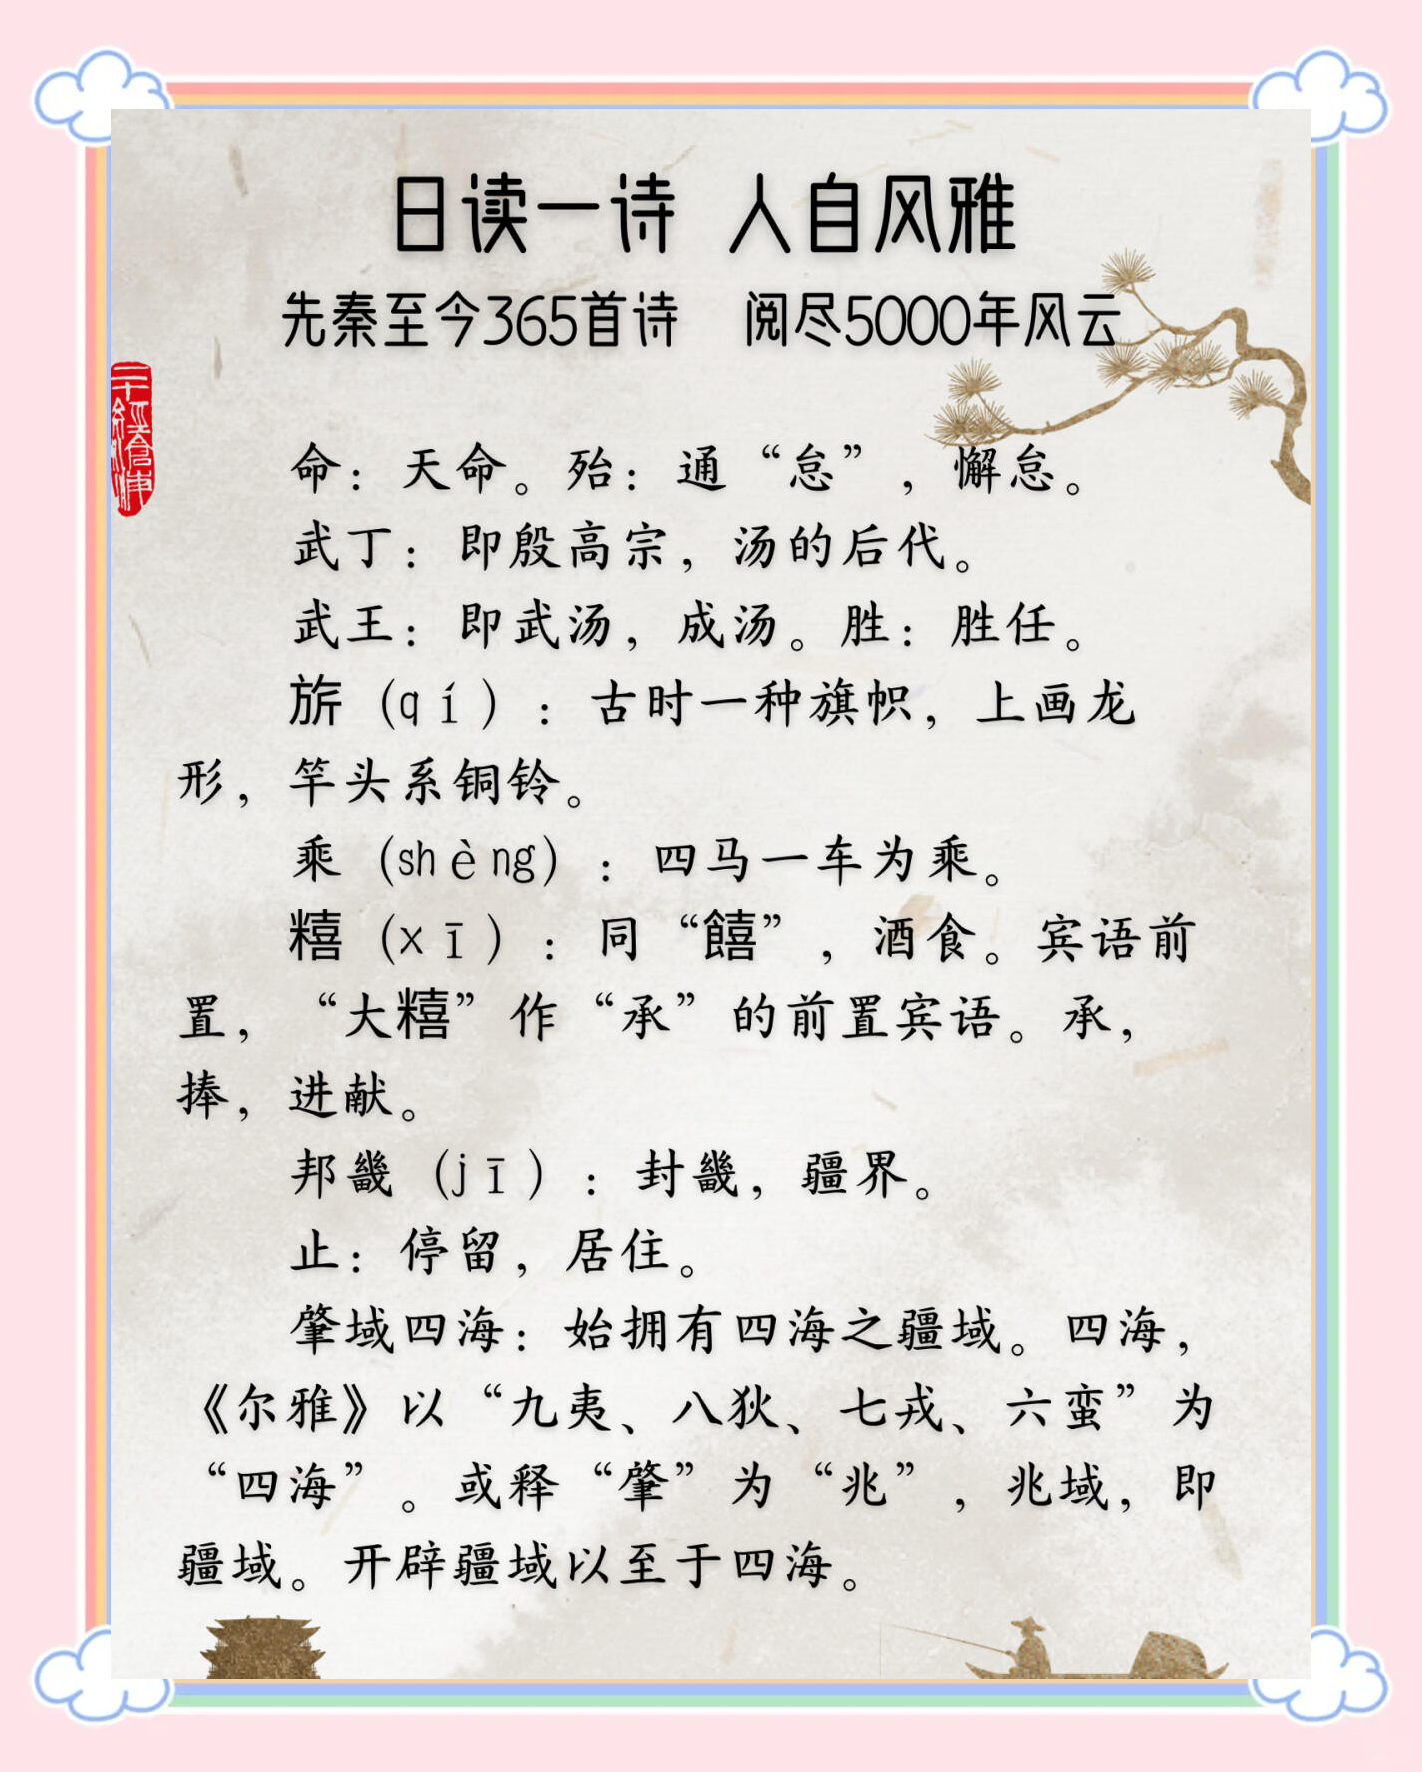 日读一诗 人自风雅
先秦至今365首诗 阅尽5000年风云
命：天命。殆：通“怠”，懈怠。
武丁：即殷高宗，汤的后代。
武王：即武汤，成汤。胜：胜任。
旂（qí）：古时一种旗帜，上画龙
形，竿头系铜铃。
乘（shèng）：四马一车为乘。
糦（xī）：同“饎”，酒食。宾语前
置，“大糦”作“承”的前置宾语。承，
捧，进献。
邦畿（jī）：封畿，疆界。
止：停留，居住。
肇域四海：始拥有四海之疆域。四海，
《尔雅》以“九夷、八狄、七戎、六蛮”为
“四海”。或释“肇”为“兆”，兆域，即
疆域。开辟疆域以至于四海。